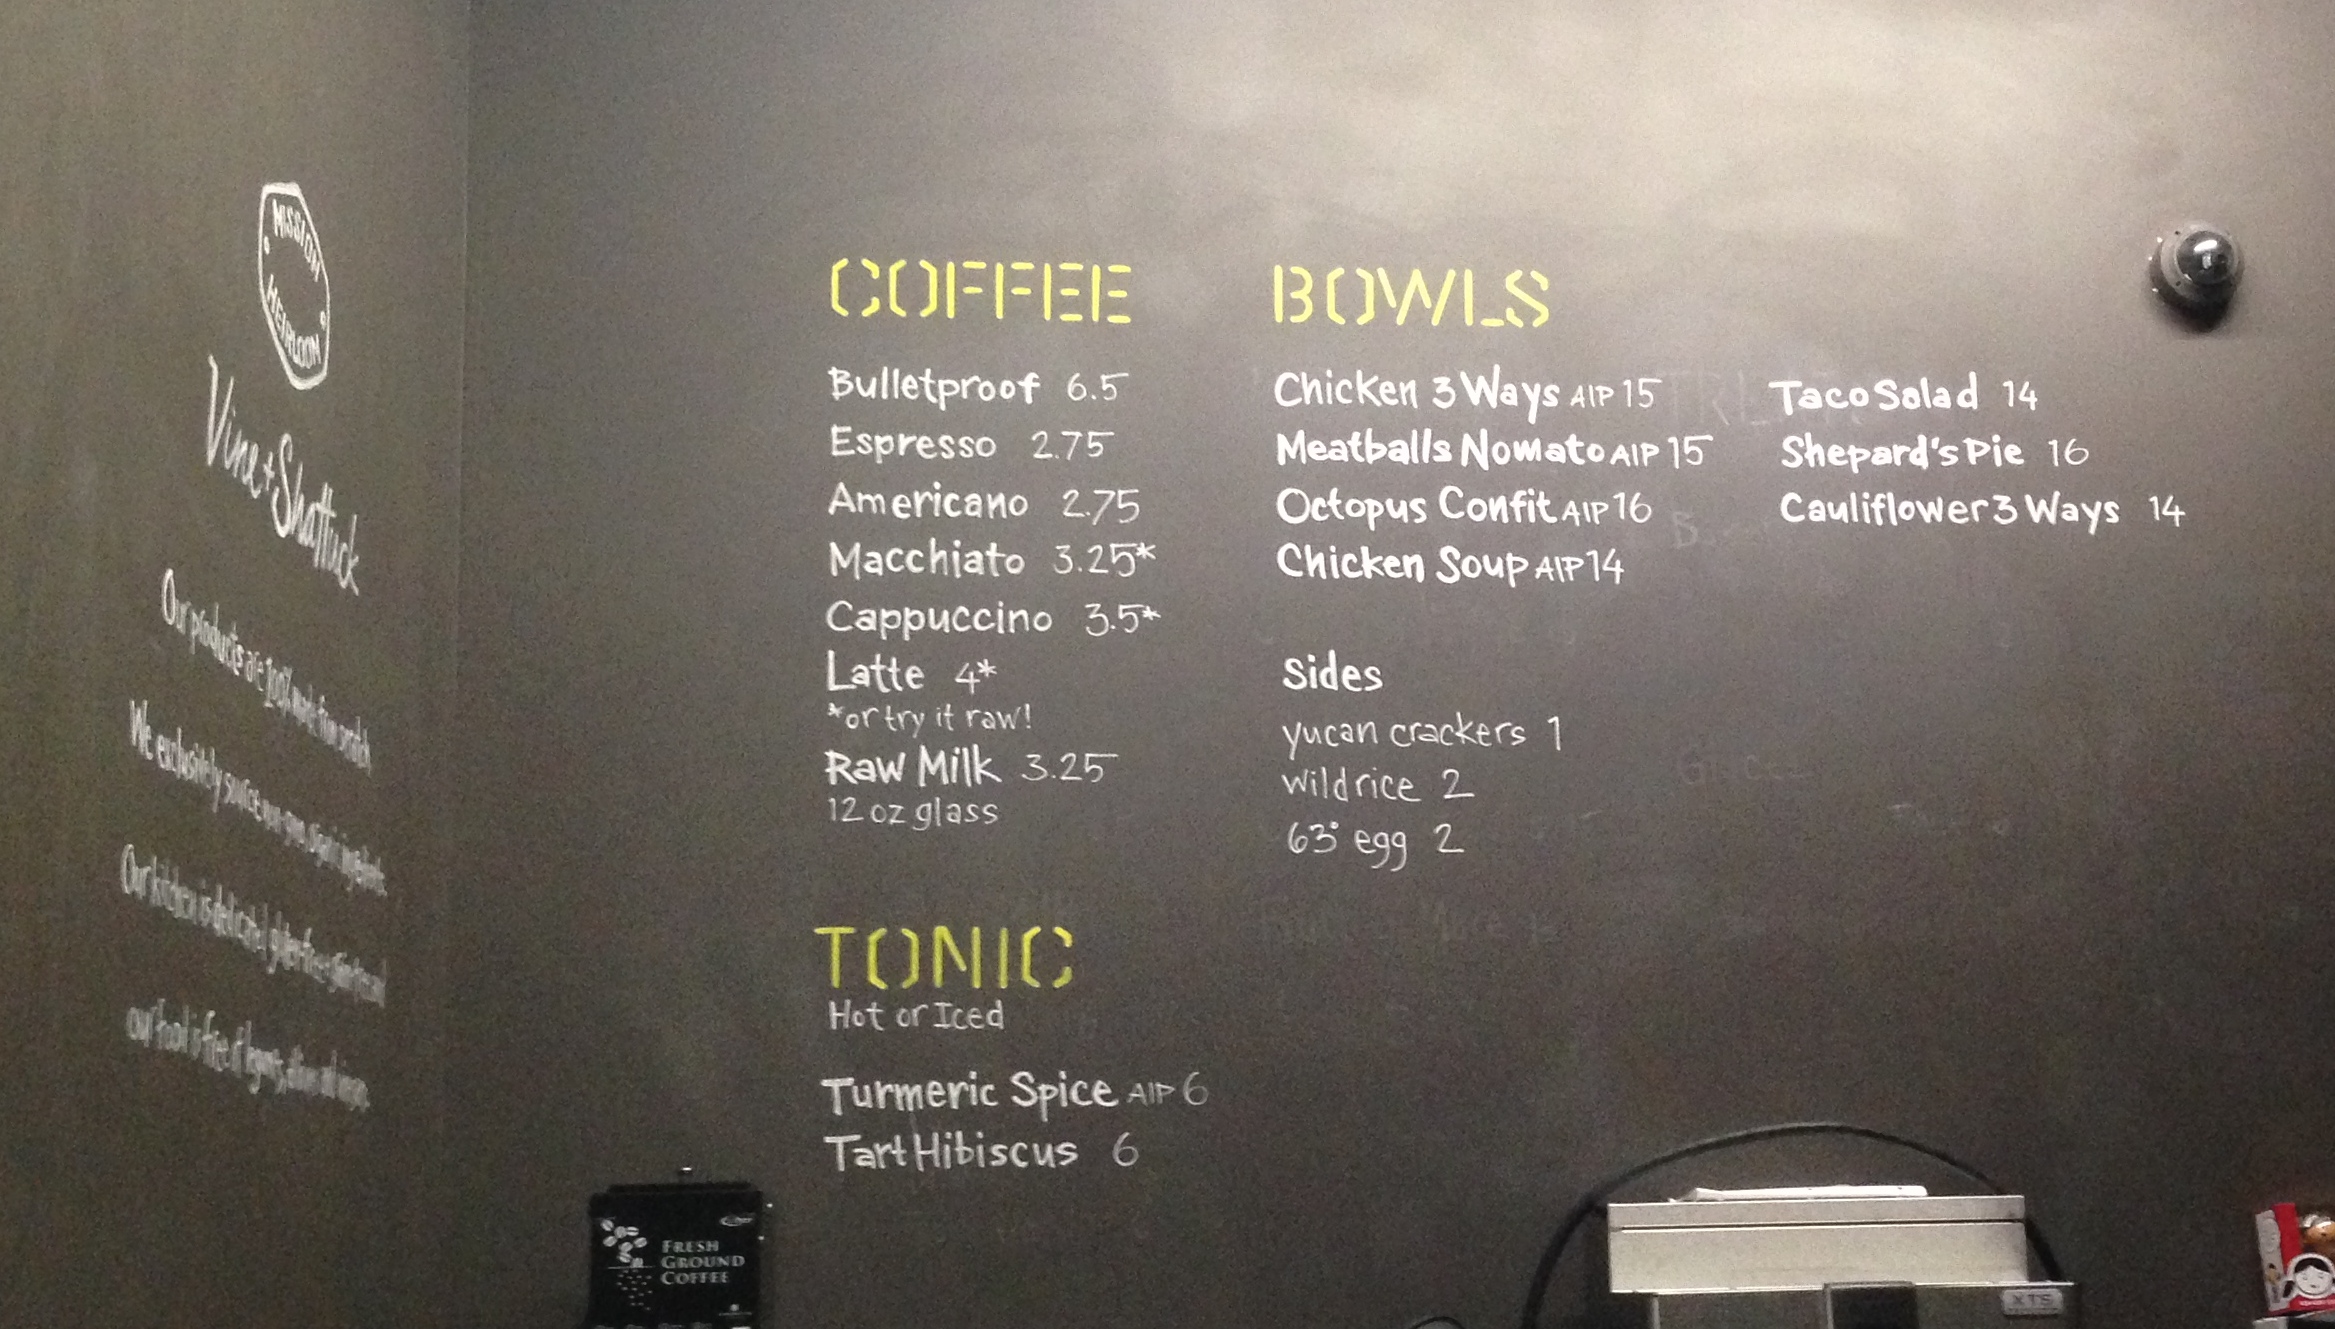 MISSION
HEIRLOOM
Vine + Shattuck
Our products are 100% made from scratch
We exclusively source our own organic ingredients.
Our kitchen is dedicated gluten free
our food is free of legumes,
COFFEE
Bulletproof 6.5
Espresso 2.75
Americano 2.75
Macchiato 3.25*
Cappuccino 3.5*
Latte 4*
*or try it raw!
Raw Milk 3.25
12 oz glass
TONIC
Hot or Iced
Turmeric Spice AIP 6
Tart Hibiscus 6
BOWLS
Chicken 3 Ways AIP 15
Meatballs Nomato AIP 15
Octopus Confit AIP 16
Chicken Soup AIP 14
Taco Salad 14
Shepard's Pie 16
Cauliflower 3 Ways 14
Sides
yucan crackers 1
wild rice 2
63° egg 2
FRESH
GROUND
COFFEE
XTS